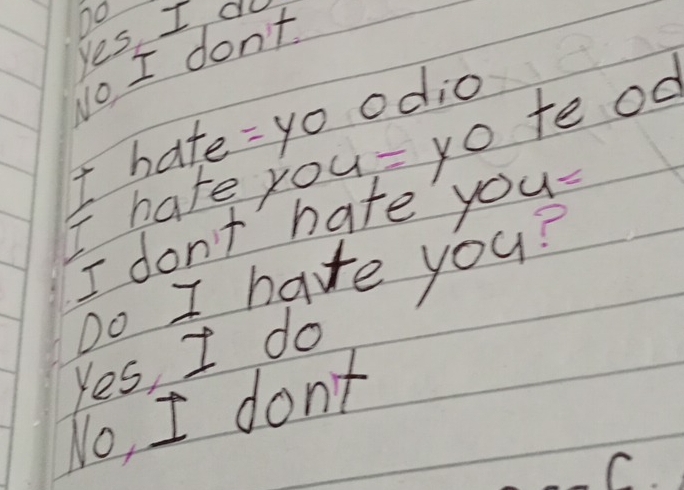 Do
Yes, I do
No, I don't.
I hate = yo odio
I hate you = yo te od
I don't hate you =
Do I hate you?
Yes, I do
No, I don't